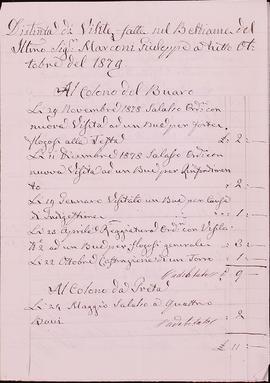 Distinta di Visite fatte nel Bestiame del
Illmo Sigr Marconi Giuseppe a tutto Ot-
tobre del 1879
Al Colono del Buaro
Li 29 Novembre 1878 Salasso Ordn con
nuova Visita ad un Bue per forte
flogosi alla Testa £ 2=
Li 11 Dicembre 1878 Salasso Ordn con
nuova Visita ad un Bue per
to " 2=
Li 19 Gennaro Visitato un Bue per causa
d'Indigestione " 1=
Li 20 Aprile Ordn con Visita
N 2 ad un Bue per flogosi generale " 3=
Li 22 Ottobre Castrazione di un Torro " 1=
£ 9
Al Colono da Preta
Li 24 Maggio Salasso a quattro
Bovi 2
£ 11=